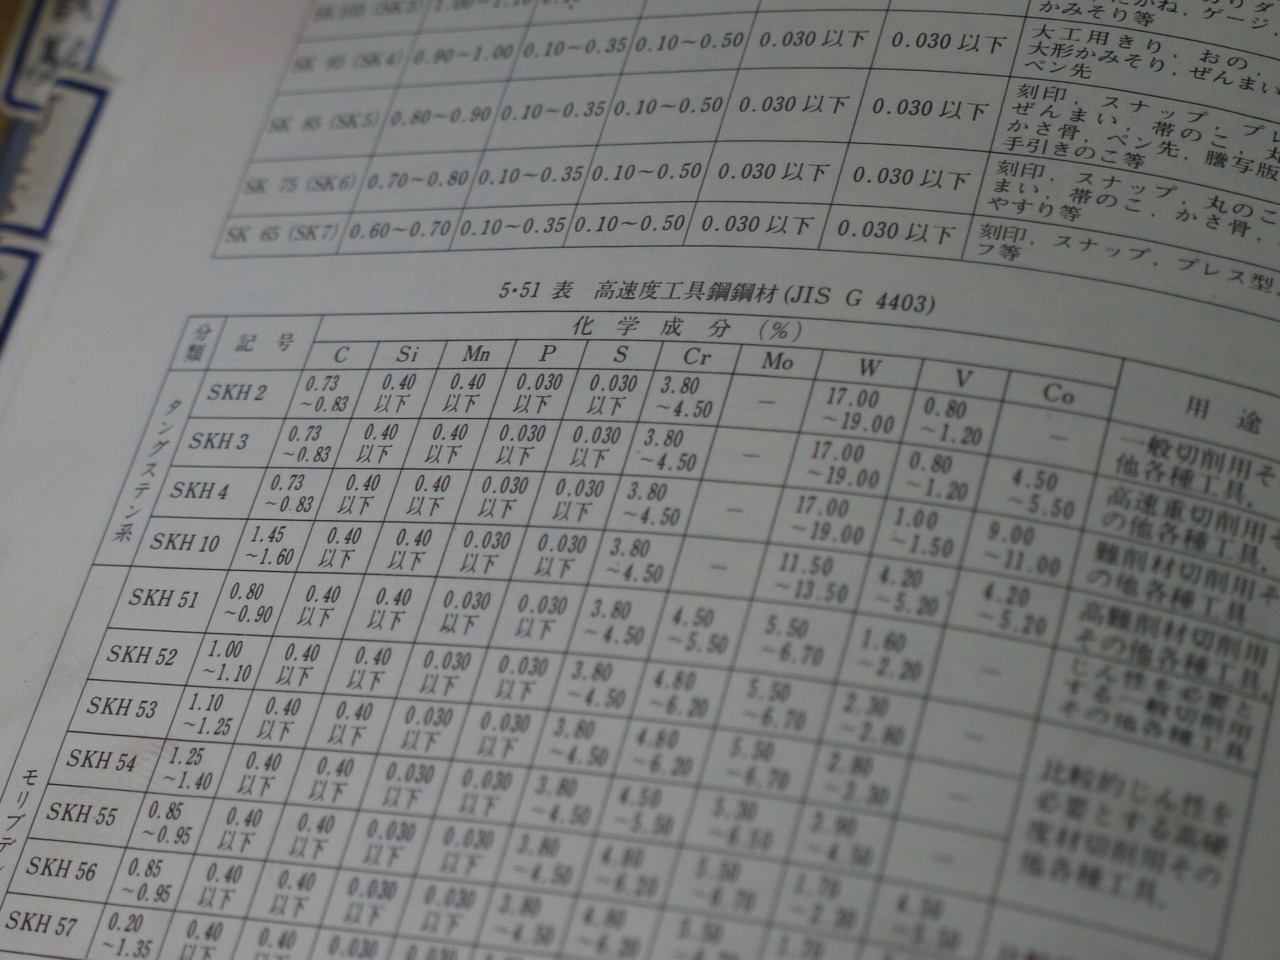 SK 95 (SK4) 0.90~1.00 0.10~0.35 0.10~0.50 0.030以下 0.030以下 大工用きり，おの，
大形かみそり，ぜんまい
ペン先
SK 85 (SK5) 0.80~0.90 0.10~0.35 0.10~0.50 0.030以下 0.030以下 刻印，スナップ，プレ
ぜんまい，帯のこ，丸
かさ骨，ペン先，謄写版
手引きのこ等
SK 75 (SK6) 0.70~0.80 0.10~0.35 0.10~0.50 0.030以下 0.030以下 刻印，スナップ，丸のこ
まい，帯のこ，かさ骨，
やすり等
SK 65 (SK7) 0.60~0.70 0.10~0.35 0.10~0.50 0.030以下 0.030以下 刻印，スナップ，プレス型，
フ等
5・51 表 高速度工具鋼鋼材 (JIS G 4403)
分類 記号 化学成分 (%) 用途
C Si Mn P S Cr Mo W V Co
タングステン系
SKH 2 0.73~0.83 0.40以下 0.40以下 0.030以下 0.030以下 3.80~4.50 — 17.00~19.00 0.80~1.20 — 一般切削用そ
他各種工具．
SKH 3 0.73~0.83 0.40以下 0.40以下 0.030以下 0.030以下 3.80~4.50 — 17.00~19.00 0.80~1.20 4.50~5.50 高速重切削用そ
の他各種工具．
SKH 4 0.73~0.83 0.40以下 0.40以下 0.030以下 0.030以下 3.80~4.50 — 17.00~19.00 1.00~1.50 9.00~11.00 難削材切削用そ
の他各種工具
SKH 10 1.45~1.60 0.40以下 0.40以下 0.030以下 0.030以下 3.80~4.50 — 11.50~13.50 4.20~5.20 4.20~5.20 高難削材切削用
その他各種工具．
モリブデン
SKH 51 0.80~0.90 0.40以下 0.40以下 0.030以下 0.030以下 3.80~4.50 4.50~5.50 5.50~6.70 1.60~2.20 — じん性を必要と
する一般切削用
その他各種工具
SKH 52 1.00~1.10 0.40以下 0.40以下 0.030以下 0.030以下 3.80~4.50 4.80~6.20 5.50~6.70 2.30~2.80 — 比較的じん性を
必要とする高硬
度材切削用その
他各種工具．
SKH 53 1.10~1.25 0.40以下 0.40以下 0.030以下 0.030以下 3.80~4.50 4.80~6.20 5.50~6.70 2.80~3.30 —
SKH 54 1.25~1.40 0.40以下 0.40以下 0.030以下 0.030以下 3.80~4.50 4.50~5.50 5.30~6.50 3.90~4.50 —
SKH 55 0.85~0.95 0.40以下 0.40以下 0.030以下 0.030以下 3.80~4.50 4.80~6.20 5.50~6.70 1.70~2.30 4.50~5.50
SKH 56 0.85~0.95 0.40以下 0.40以下 0.030以下 0.030以下 3.80~4.50 4.80~6.20
SKH 57 0.20~1.35 0.40以下 0.40 0.030 0.030